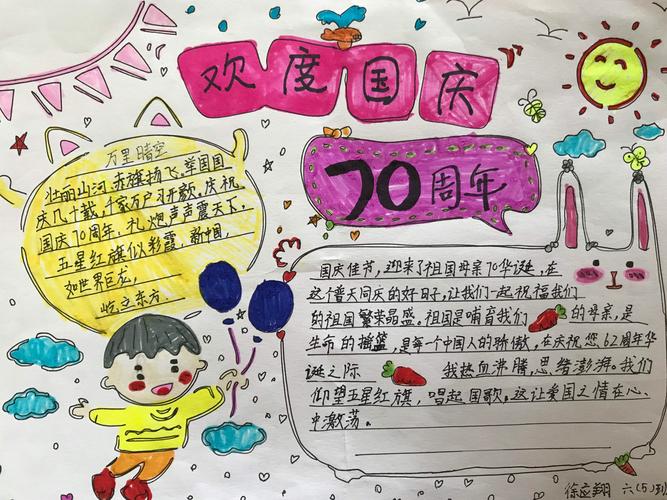 欢度国庆
70周年
万里晴空
壮丽山河,赤旗扬飞,举国国
庆几十载,千家万户习开颜,庆祝
国庆70周年,礼炮声声震天下,
五星红旗似彩霞,
如世界巨龙,
屹立东方
国庆佳节,迎来了祖国母亲70华诞,在
这个普天同庆的好日子,让我们一起祝福我们
的祖国繁荣昌盛。祖国是哺育我们的母亲,是
生命的摇篮,是每一个中国人的骄傲,在庆祝您62周年华
诞之际 我热血沸腾,思绪澎湃。我们
仰望五星红旗,唱起国歌。这让爱国之情在心
中激荡。
徐应翔 六(5)班